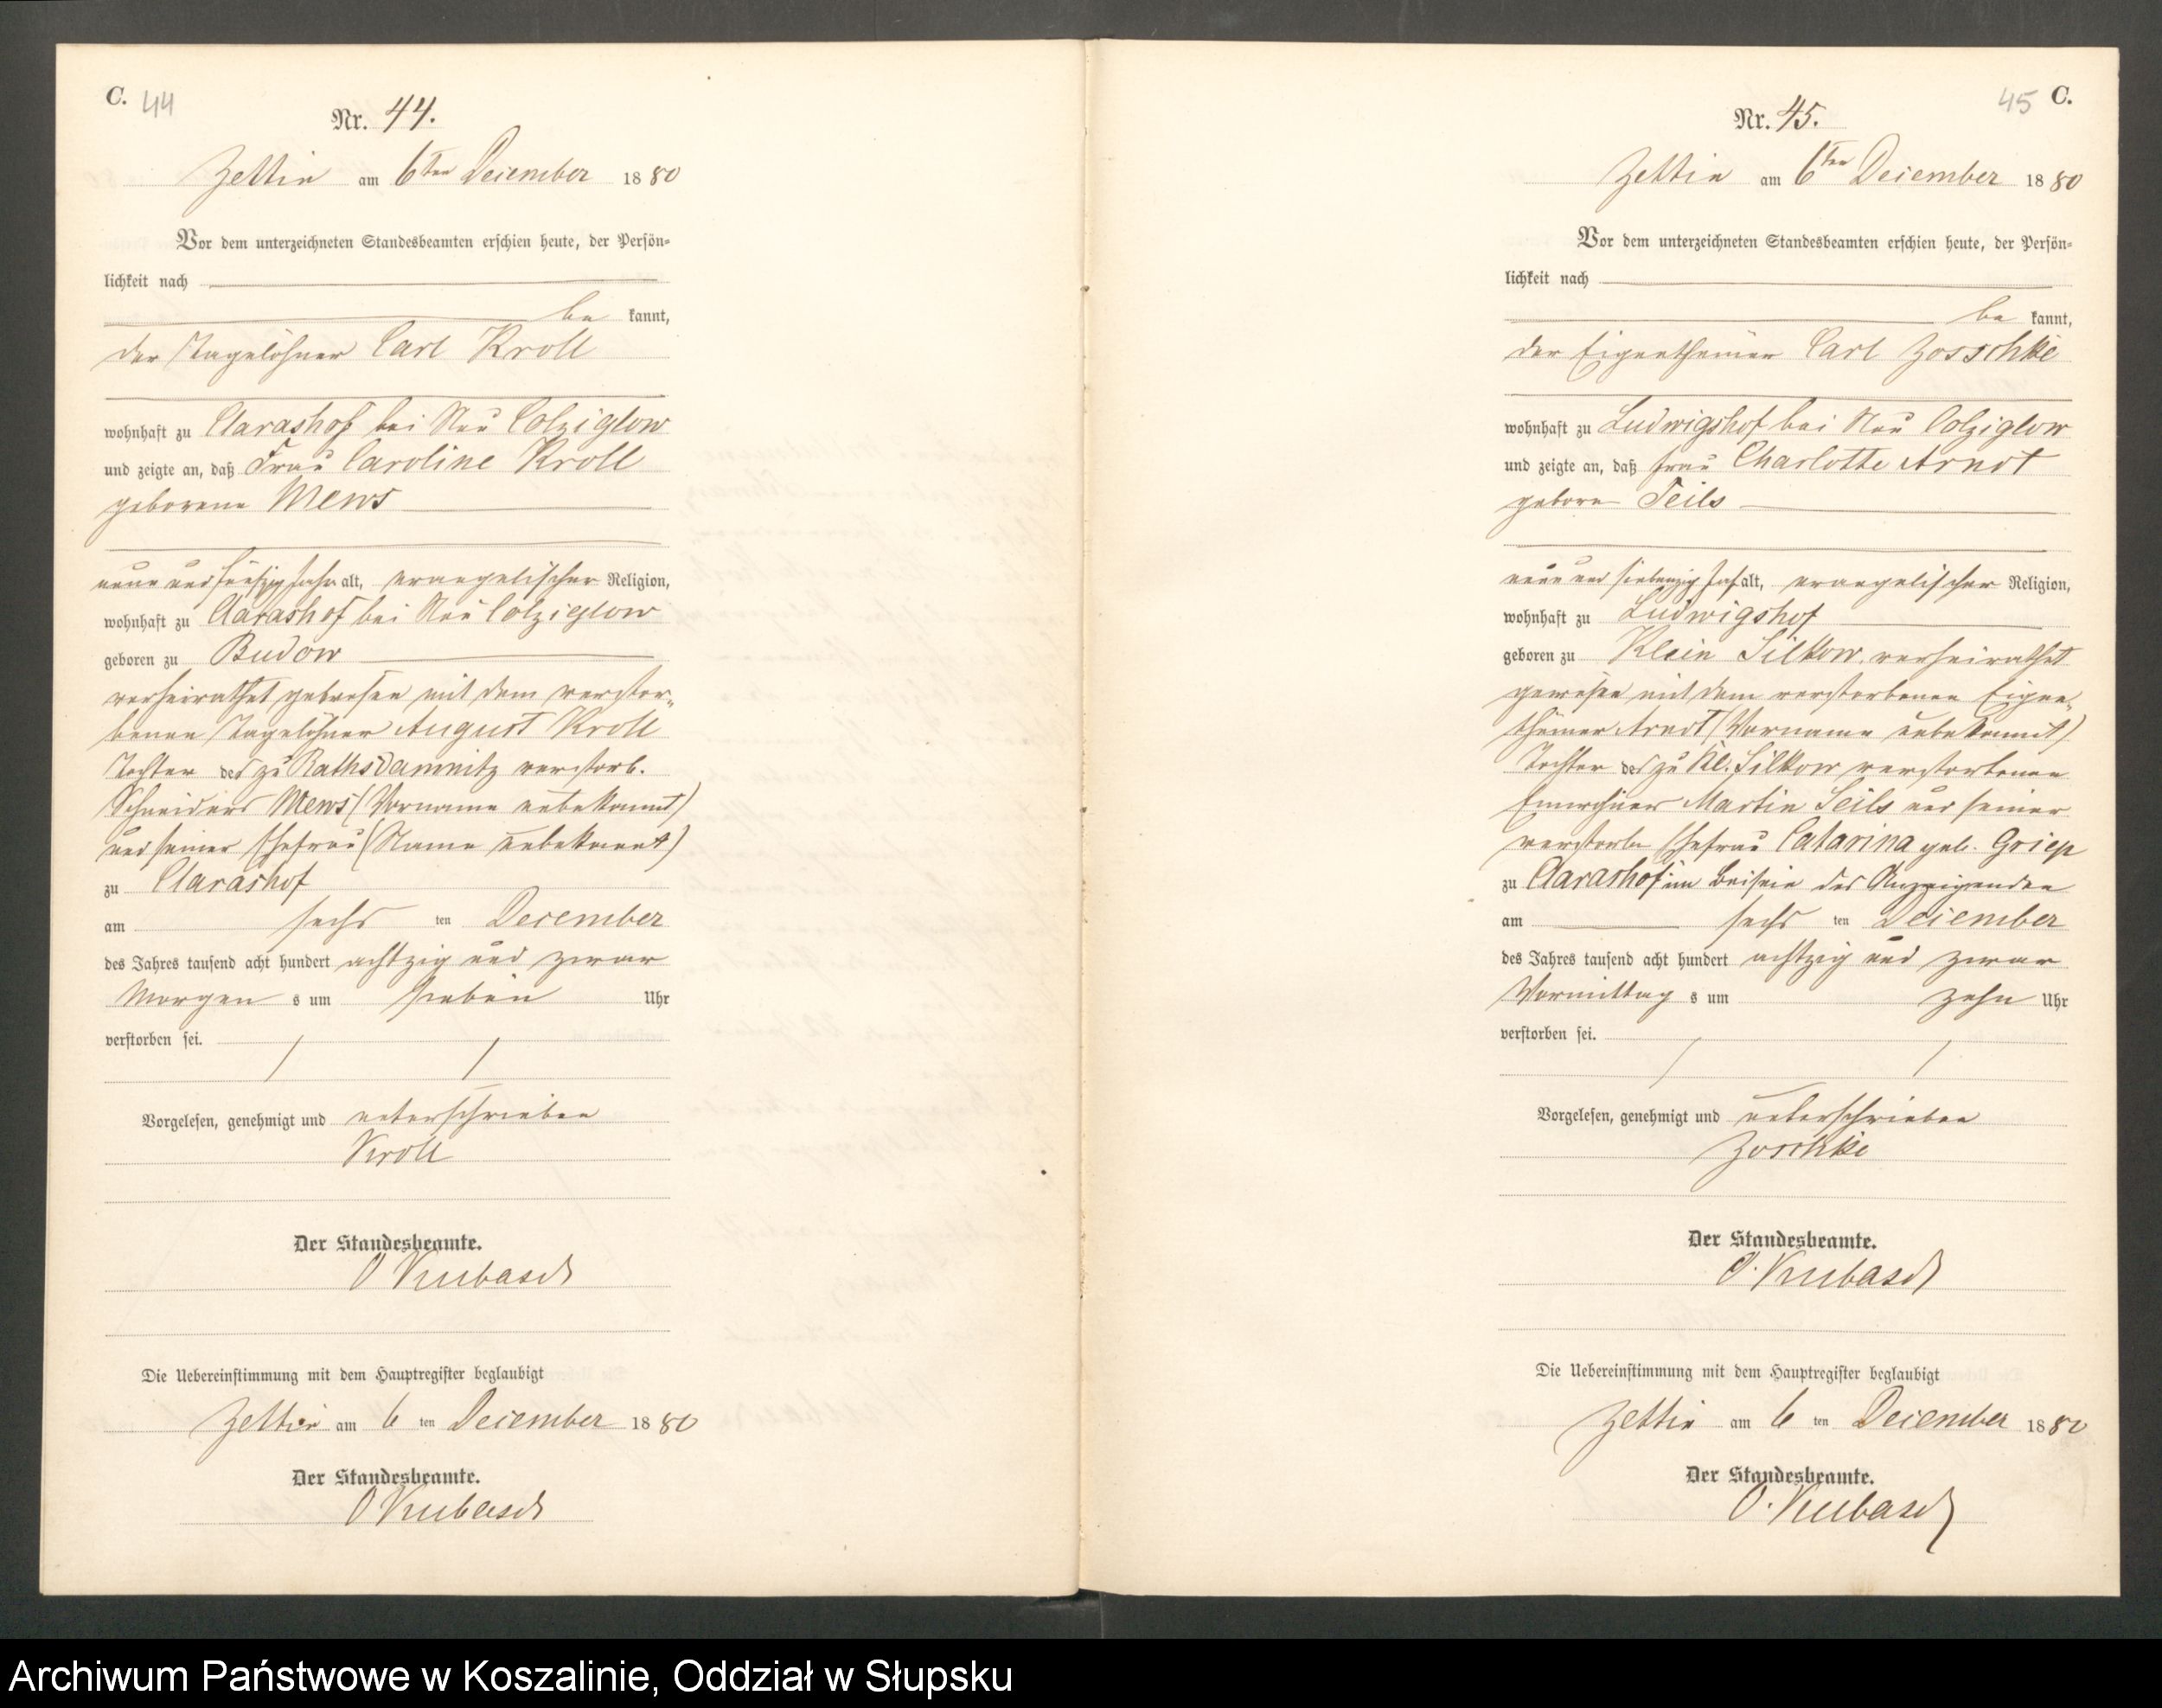 C. 44
Nr. 44.
Zettin am 6ten December 1880
Vor dem unterzeichneten Standesbeamten erschien heute, der Persön-
lichkeit nach
be kannt,
der Tagelöhner Carl Kroll
wohnhaft zu Clarashof bei Neu Colziglow
und zeigte an, daß Frau Caroline Kroll
geborene Mews
neun und fünfzig Jahr alt, evangelischer Religion,
wohnhaft zu Clarashof bei Neu Colziglow
geboren zu Budow
verheirathet gewesen mit dem verstor-
benen Tagelöhner August Kroll
Tochter des zu Rathsdamnitz verstorb.
Schneiders Mews (Vorname unbekannt)
und seiner Ehefrau (Name unbekannt)
zu Clarashof
am sechs ten December
des Jahres tausend acht hundert achtzig und zwar
Morgen s um sieben Uhr
verstorben sei.
Vorgelesen, genehmigt und unterschrieben
Kroll
Der Standesbeamte.
O Kubasch
Die Uebereinstimmung mit dem Hauptregister beglaubigt
Zettin am 6 ten December 1880
Der Standesbeamte.
O Kubasch
45 C.
Nr. 45.
Zettin am 6ten December 1880
Vor dem unterzeichneten Standesbeamten erschien heute, der Persön-
lichkeit nach
be kannt,
der Eigenthümer Carl Zoschke
wohnhaft zu Ludwigshof bei Neu Colziglow
und zeigte an, daß Frau Charlotte Arndt
geborn Seils
neun und siebenzig Jah alt, evangelischer Religion,
wohnhaft zu Ludwigshof
geboren zu Klein Silkow, verheirathet
gewesen mit dem verstorbenen Eigen-
thümer Arndt (Vorname unbekannt)
Tochter des zu Kl. Silkow verstorbenen
Einwohner Martin Seils und seiner
verstorbn Ehefrau Catarina geb. Griep
zu Clarashof im Beisein des Anzeigenden
am sechs ten December
des Jahres tausend acht hundert achtzig und zwar
Vormittag s um zehn Uhr
verstorben sei.
Vorgelesen, genehmigt und unterschrieben
Zoschke
Der Standesbeamte.
O. Kubasch
Die Uebereinstimmung mit dem Hauptregister beglaubigt
Zettin am 6 ten December 1880
Der Standesbeamte.
O. Kubasch
Archiwum Państwowe w Koszalinie, Oddział w Słupsku